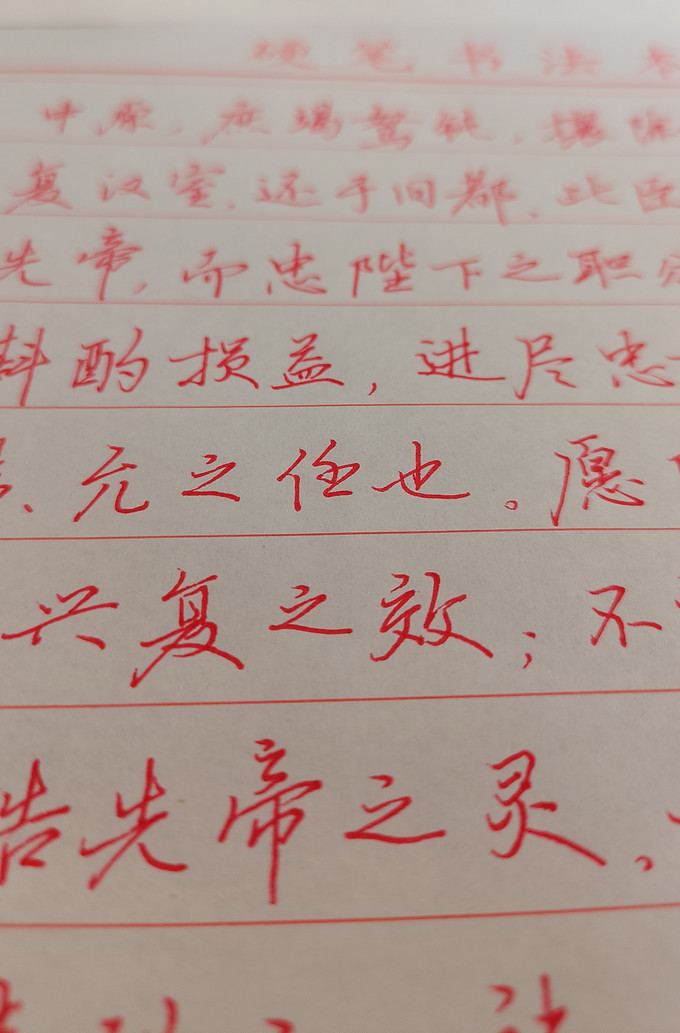 硬笔书法
中原，庶竭驽钝，攘除
复汉室，还于旧都，此臣
先帝，而忠陛下之职
斟酌损益，进尽忠
、允之任也。愿
兴复之效；不
告先帝之灵，